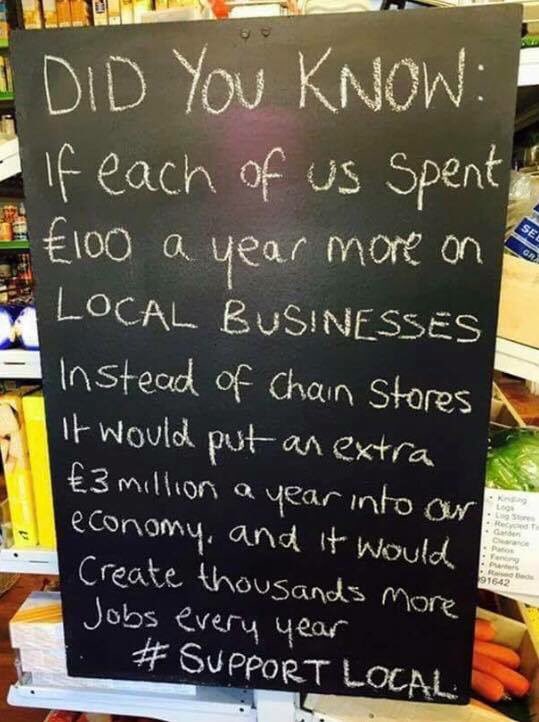 DID YOU KNOW:
If each of us spent
£100 a year more on
LOCAL BUSINESSES
Instead of chain stores
It would put an extra
£3 million a year into our
economy. and it would
Create thousands more
Jobs every year
# SUPPORT LOCAL
• Kindling
• Logs
• Log Stores
• Recycled
• Garden
Clearance
• Patios
• Fencing
• Planters
• Raised Beds
91642